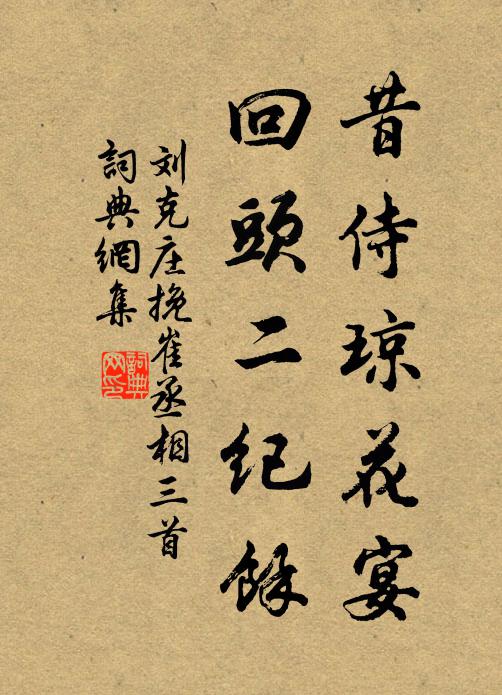 昔侍琼花宴
回頭二纪餘
刘克庄挽崔丞相三首
詞典網集
詞典网印